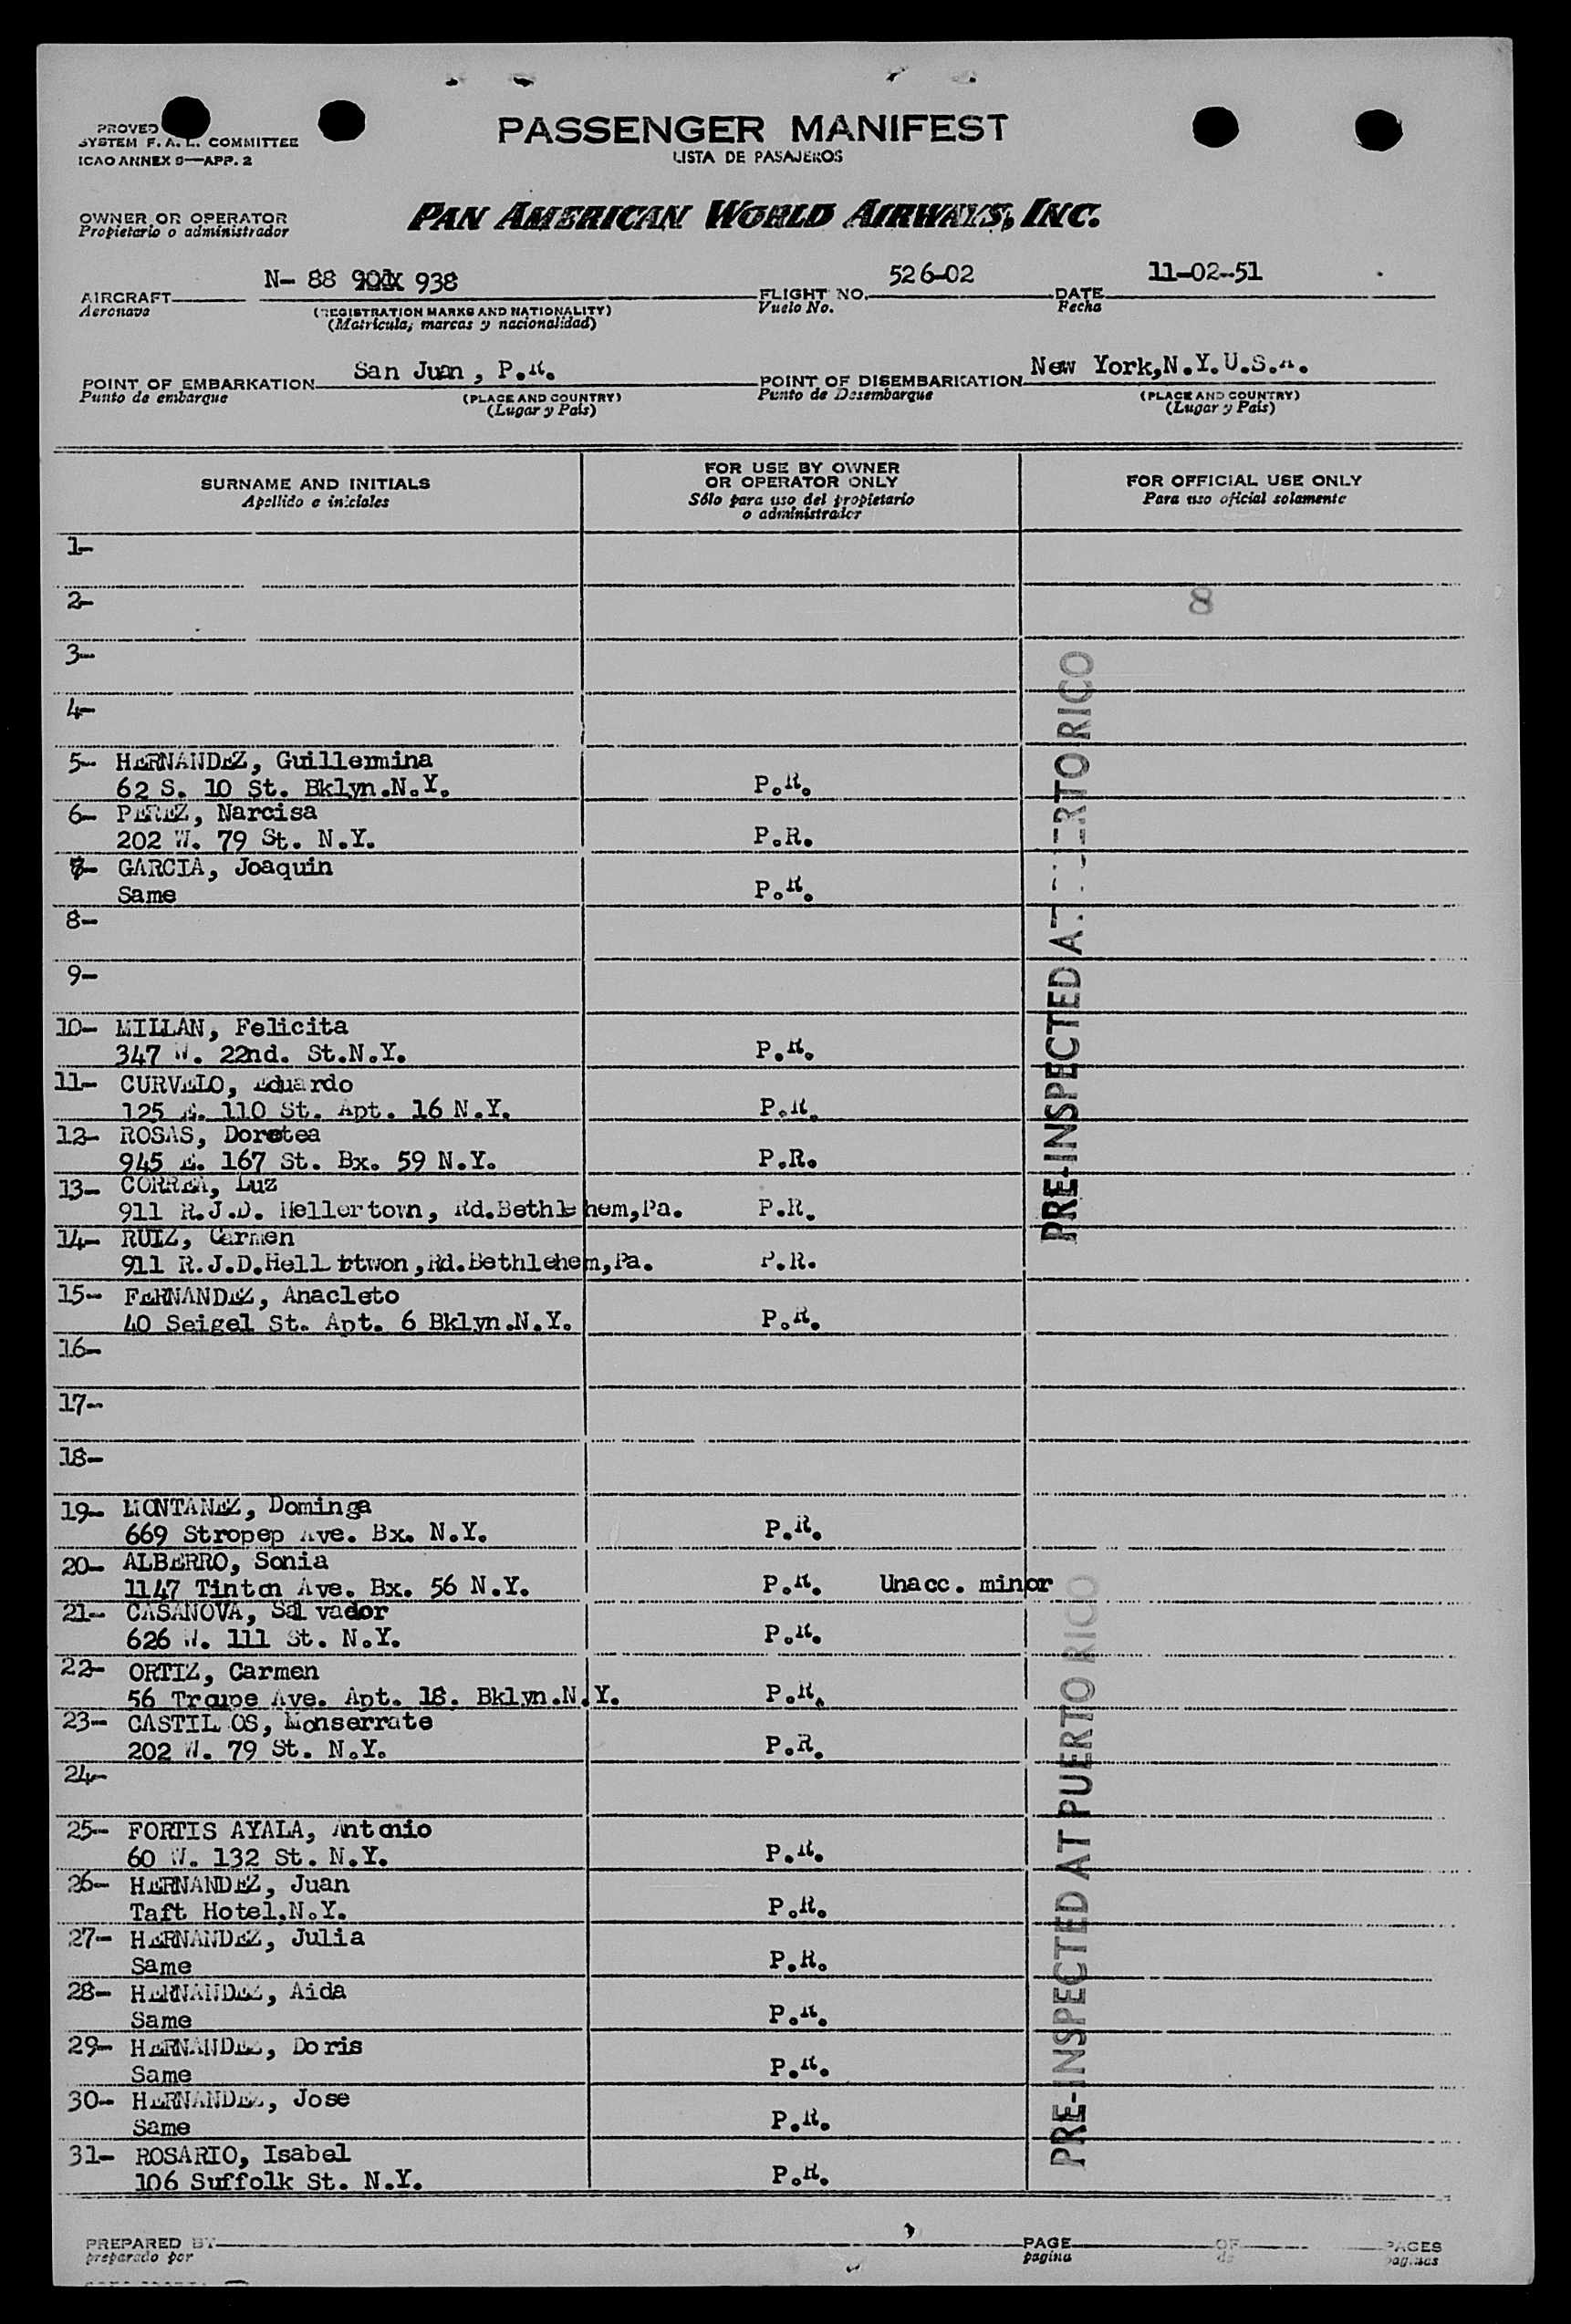 PROVED
SYSTEM F. A. L. COMMITTEE
ICAO ANNEX 9—APP. 2
PASSENGER MANIFEST
LISTA DE PASAJEROS
OWNER OR OPERATOR
Propietario o administrador
PAN AMERICAN WORLD AIRWAYS, INC.
AIRCRAFT N- 88 938
Aeronave
(REGISTRATION MARKS AND NATIONALITY)
(Matrícula, marcas y nacionalidad)
FLIGHT NO. 526-02
Vuelo No.
DATE 11-02-51
Fecha
POINT OF EMBARKATION San Juan, P.R.
Punto de embarque
(PLACE AND COUNTRY)
(Lugar y País)
POINT OF DISEMBARKATION New York,N.Y.U.S.A.
Punto de Desembarque
(PLACE AND COUNTRY)
(Lugar y País)
SURNAME AND INITIALS
Apellido e iniciales
FOR USE BY OWNER
OR OPERATOR ONLY
Sólo para uso del propietario
o administrador
FOR OFFICIAL USE ONLY
Para uso oficial solamente
1-
2- 8
3-
4-
5- HERNANDEZ, Guillermina
62 S. 10 St. Bklyn.N.Y. P.R.
6- PEREZ, Narcisa
202 W. 79 St. N.Y. P.R.
7- GARCIA, Joaquin
Same P.R.
8-
9-
10- MILLAN, Felicita
347 W. 22nd. St.N.Y. P.R.
11- CURVELO, Eduardo
125 E. 110 St. Apt. 16 N.Y. P.R.
12- ROSAS, Dorotea
945 E. 167 St. Bx. 59 N.Y. P.R.
13- CORREA, Luz
911 R.J.D. Hellertown, Rd.Bethlehem,Pa. P.R.
14- RUIZ, Carmen
911 R.J.D.Hell rtwon,Rd.Bethlehem,Pa. P.R.
15- FERNANDEZ, Anacleto
40 Seigel St. Apt. 6 Bklyn.N.Y. P.R.
16-
17-
18-
PRE-INSPECTED AT PUERTO RICO
19- MONTANEZ, Dominga
669 Stropep Ave. Bx. N.Y. P.R.
20- ALBERRO, Sonia
1147 Tinton Ave. Bx. 56 N.Y. P.R. Unacc. minor
21- CASANOVA, Salvador
626 W. 111 St. N.Y. P.R.
22- ORTIZ, Carmen
56 Ave. Apt. 18. Bklyn.N.Y. P.R.
23- CASTIL OS, Monserrate
202 W. 79 St. N.Y. P.R.
24-
25- FORTIS AYALA, Antonio
60 W. 132 St. N.Y. P.R.
26- HERNANDEZ, Juan
Taft Hotel,N.Y. P.R.
27- HERNANDEZ, Julia
Same P.R.
28- HERNANDEZ, Aida
Same P.R.
29- HERNANDEZ, Doris
Same P.R.
30- HERNANDEZ, Jose
Same P.R.
31- ROSARIO, Isabel
106 Suffolk St. N.Y. P.R.
PRE-INSPECTED AT PUERTO RICO
PREPARED BY
preparado por
PAGE OF PAGES
pagina de paginas